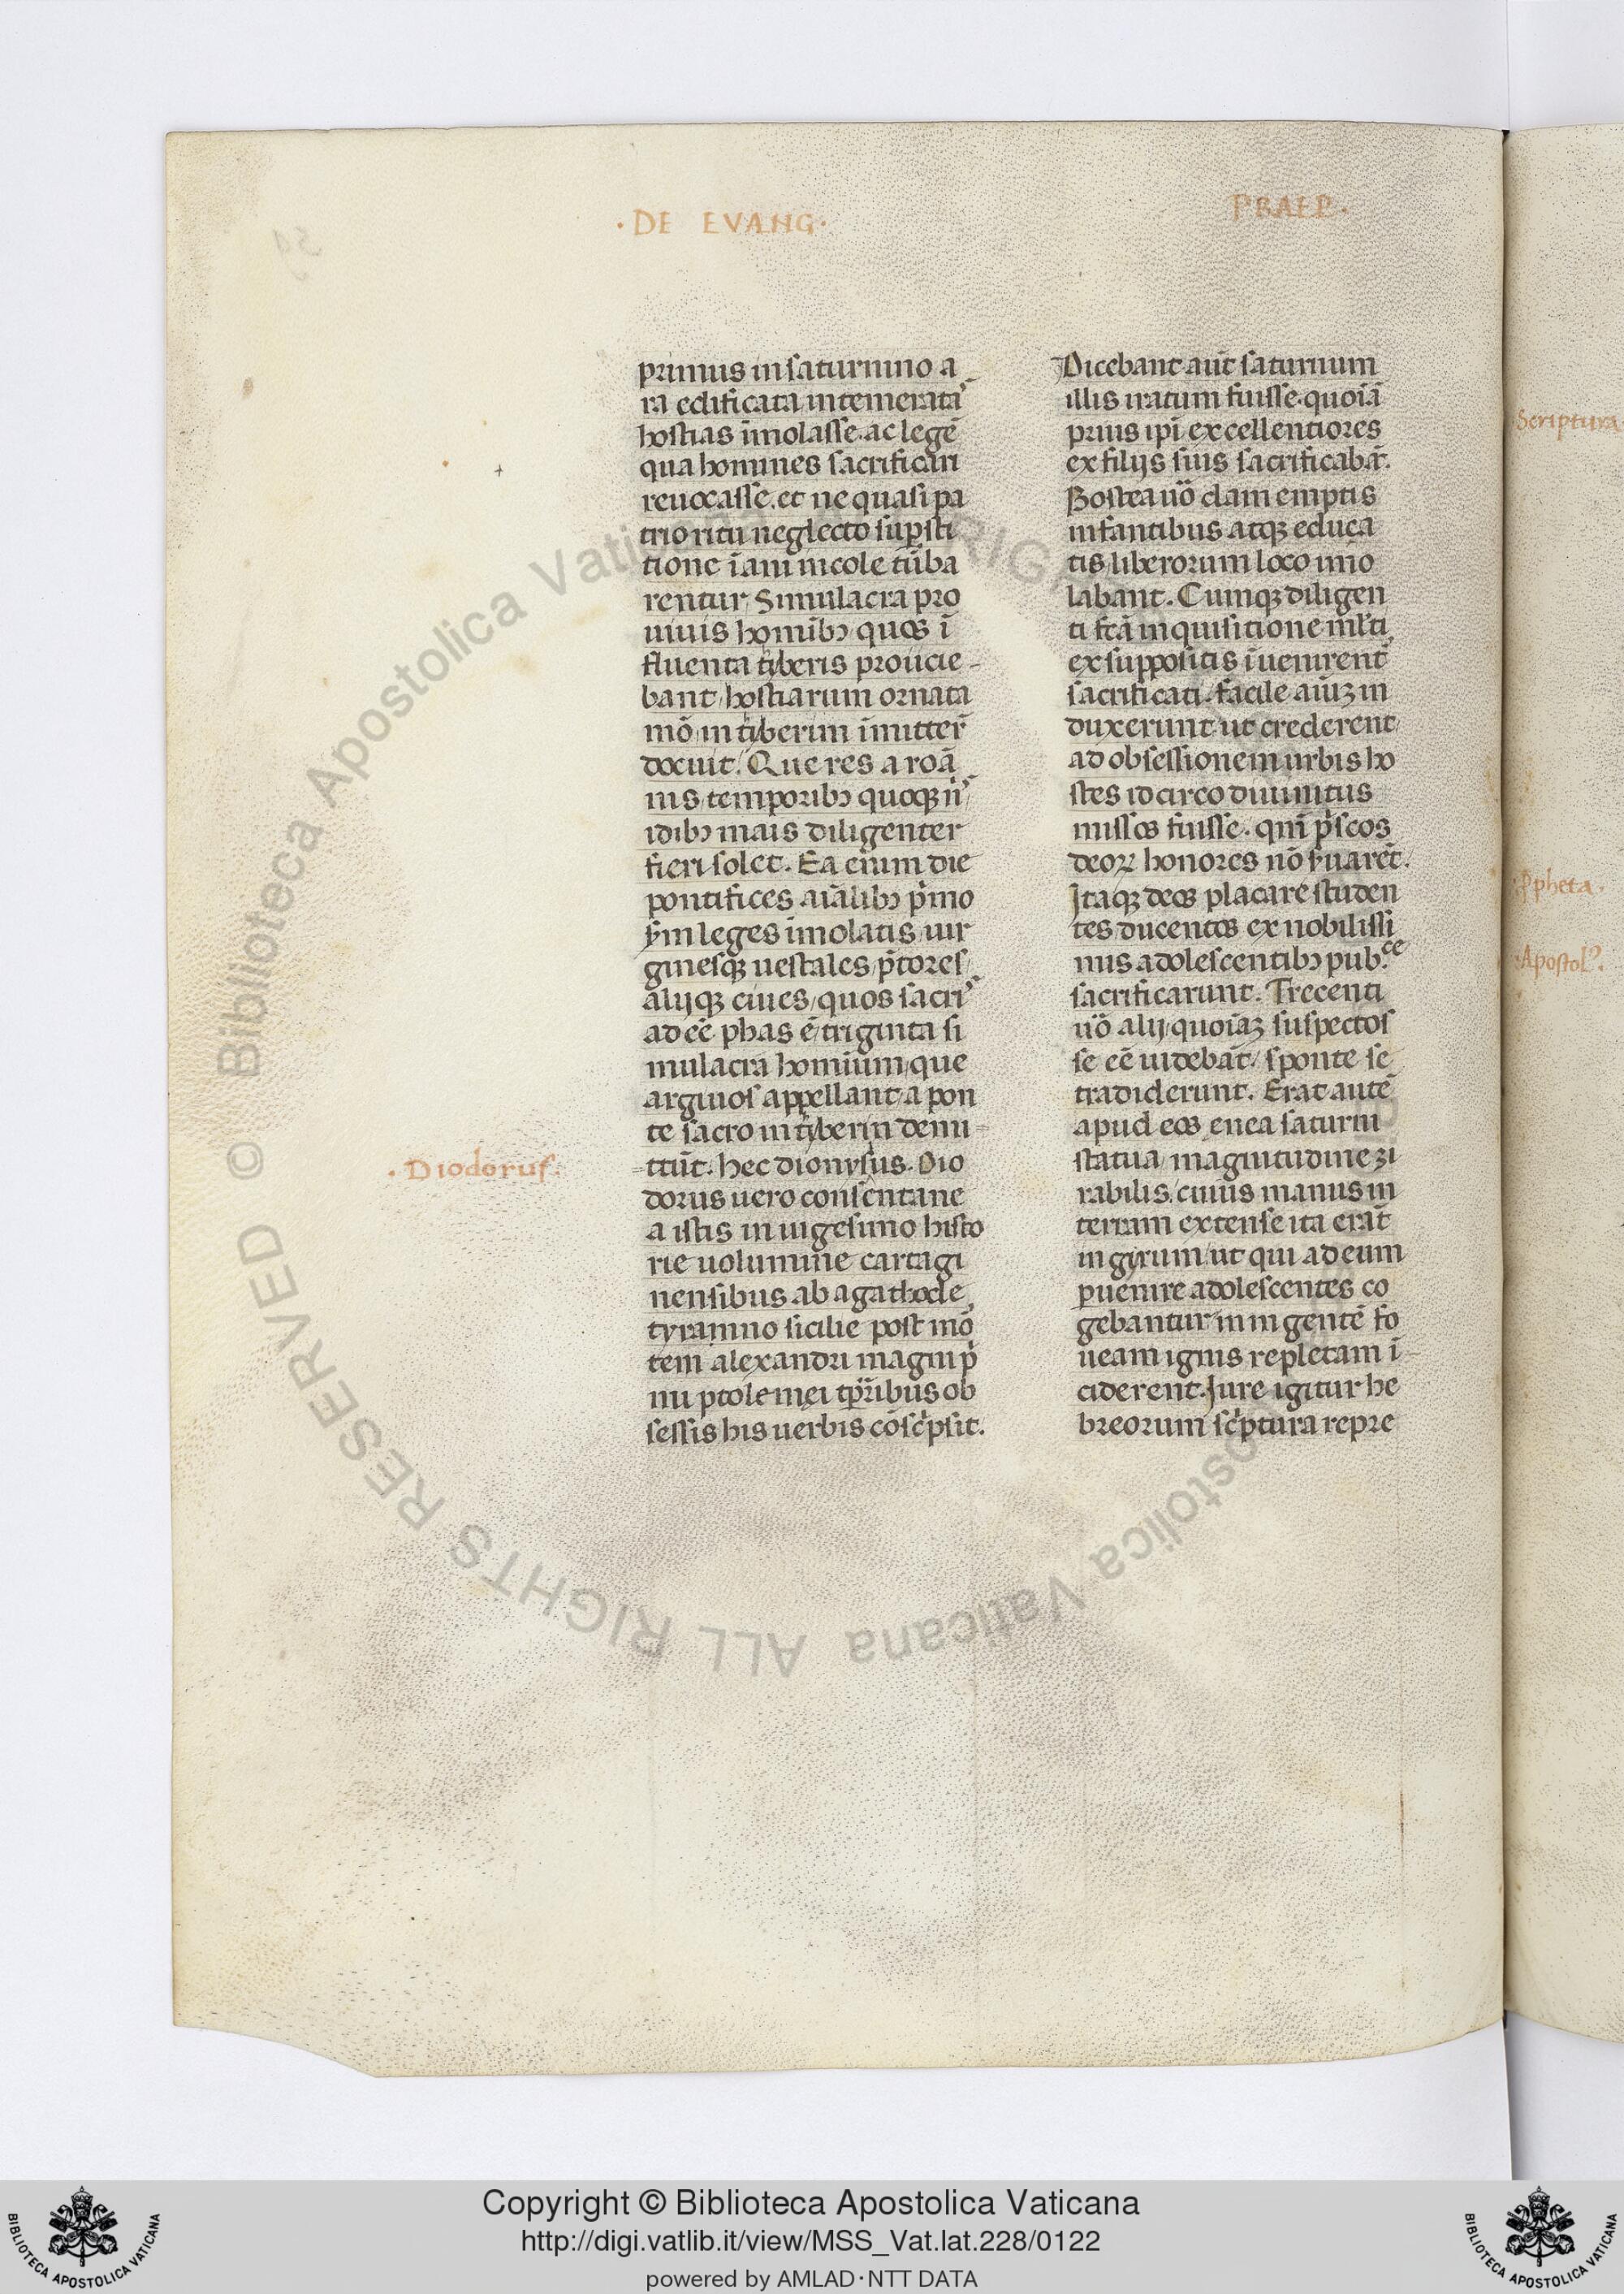 · DE EVANG ·
PRAEP ·
primus in saturnino a
ra edificata intemeratas
hostias īmolasse. ac legē
qua homines sacrificari
reuocasse. et ne quasi pa
trio ritu neglecto sup̱sti
tione iam incole tūba
rentur, Simulacra pro
uiuis homībꝫ quos ī
fluenta tyberis proiicie-
bant hostiarum ornata
mō in tyberim īmitter̄
docuit. Que res a roā
nis temporibꝫ quoqꝫ nr̄īs
idibꝫ mais diligenter
fieri solet. Ea enim die
pontifices aīalibꝫ pͥmo
leges īmolatis, uir
ginesqꝫ uestales p̄tores
alijqꝫ ciues, quos sacris
adeē phas ē, triginta si
mulacra hominum, que
argiuos appellant, a pon
te sacro in tyberin demi
ttūt. hec dionysus. Dio
· Diodorus ·
dorus uero consentane
a istis in uigesimo histo
rie uolumine cartagi
nensibus ab agathocle
tyramno sicilie post mō
tem alexandri magni pͥ
mi ptolemei tꝑribus ob
sessis his uerbis cōscͥpsit.
Dicebant aūt saturnum
illis iratum fuisse. quoīā
prius ipī excellentiores
ex filijs suis sacrificabāt.
Postea uō clam emptis
infantibus atqꝫ educa
tis, liberorum loco imo
labant. Cumqꝫ diligen
ti fcā inquisitione ml̄ti
ex suppositis īuenirent̄
sacrificati. facile aīuꝫ in
duxerunt ut crederent
ad obsessionem urbis ho
stes idcirco diuinitus
missos fuisse. qm̄ pͥscos
deoꝝ honores nō ẜuarēt.
Itaqꝫ deos placare studen
tes ducentos ex nobilissi
mis adolescentibꝫ pub.ce
sacrificarunt. Trecenti
uō alij quoīaꝫ suspectos
se eē uidebāt, sponte se
tradiderunt. Erat autē
apud eos enea saturni
statua magnitudine zi
rabilis. cuius manus in
terram extense ita erāt
in gyrum, ut qui ad eum
ꝑuenire adolescentes co
gebantur in ingentē fo
ueam ignis repletam ī
ciderent. Iure igitur he
breorum scͥptura repre
Scriptura
Ppheta.
Apostolꝰ.
Copyright © Biblioteca Apostolica Vaticana
http://digi.vatlib.it/view/MSS_Vat.lat.228/0122
powered by AMLAD·NTT DATA
BIBLIOTECA APOSTOLICA VATICANA
BIBLIOTECA APOSTOLICA VATICANA
© Biblioteca Apostolica Vaticana ALL RIGHTS RESERVED